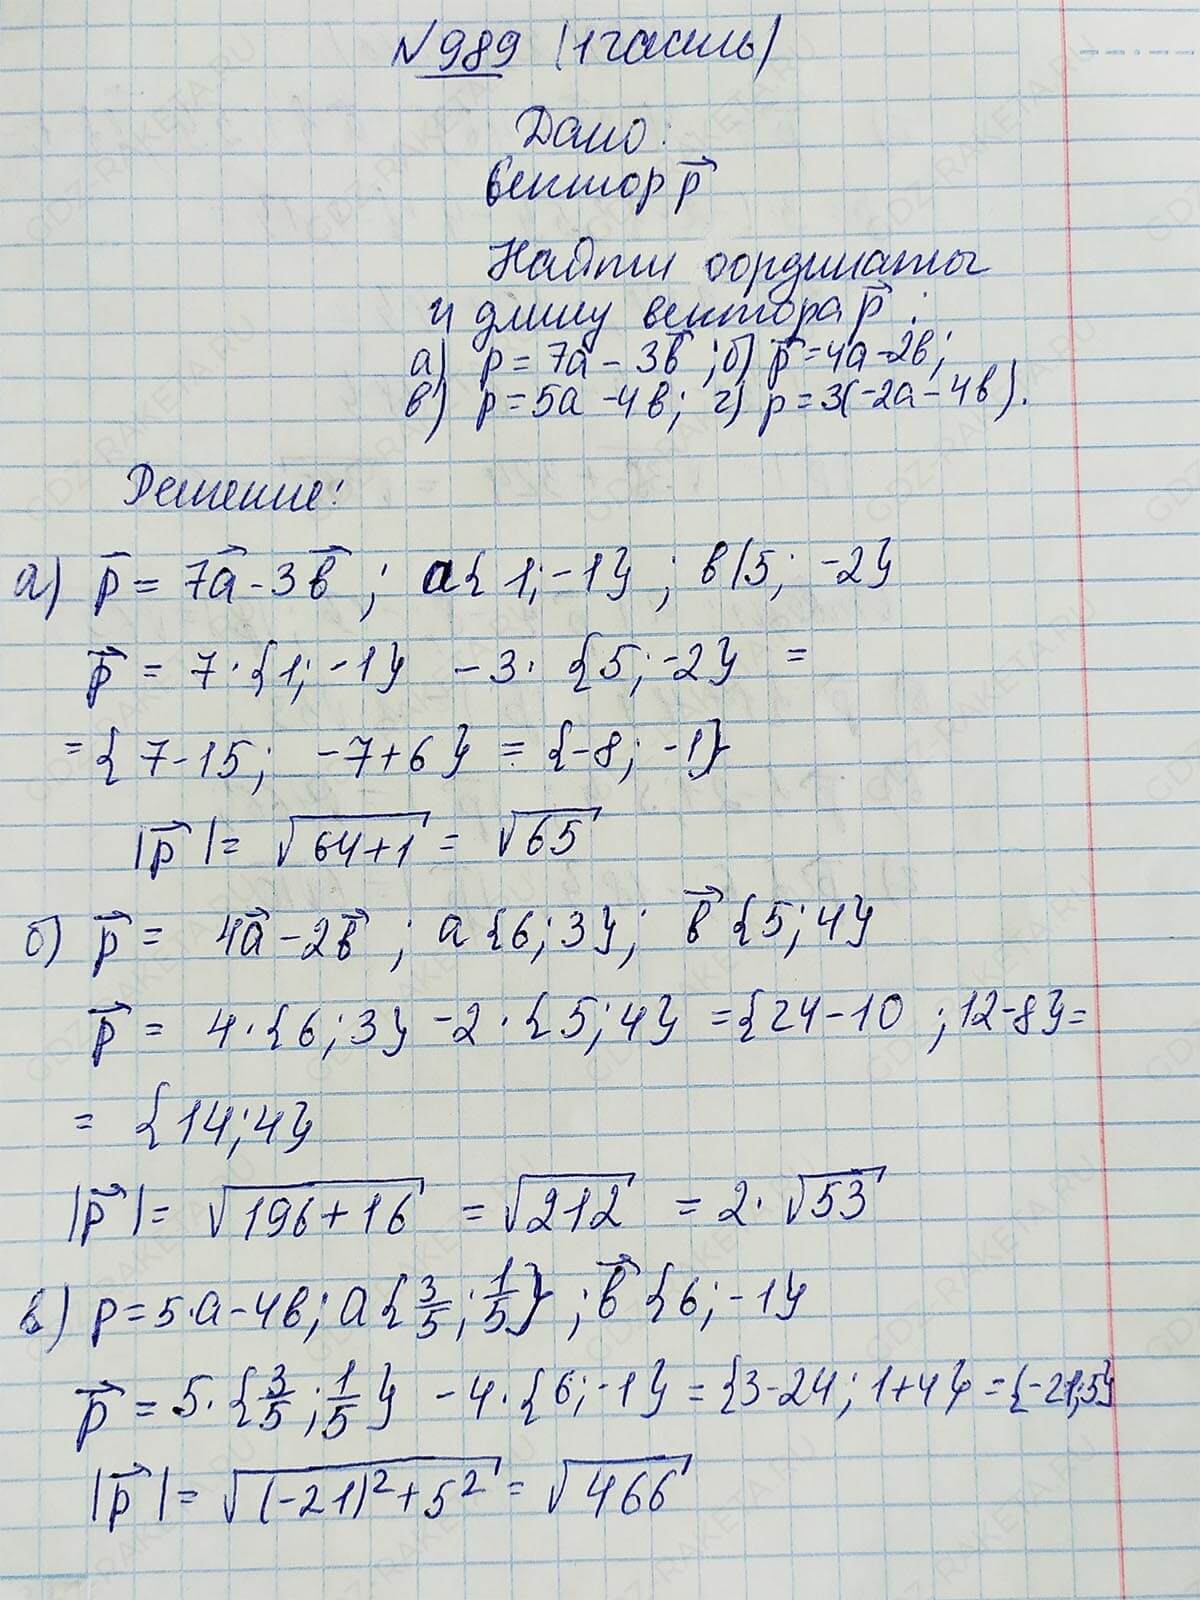 №989 (1 часть)
Дано:
вектор p⃗
Найти оординаты
и длину вектора p⃗ :
а) p = 7a - 3b⃗ ; б) p⃗ = 4a - 2b;
в) p = 5a - 4b; г) p = 3(-2a - 4b).
Решение:
а) p⃗ = 7a⃗ - 3b⃗ ; a{1; -1} ; b{5; -2}
p⃗ = 7·{1; -1} - 3· {5; -2} =
= {7-15; -7+6} = {-8; -1}
|p⃗| = √(64+1) = √65
б) p⃗ = 4a⃗ - 2b⃗ ; a{6; 3}; b⃗ {5; 4}
p⃗ = 4·{6; 3} - 2·{5; 4} = {24-10 ; 12-8} =
= {14; 4}
|p⃗| = √(196+16) = √212 = 2·√53
в) p = 5·a - 4b; a{3/5; 1/5} ; b⃗ {6; -1}
p⃗ = 5·{3/5; 1/5} - 4·{6; -1} = {3-24; 1+4} = {-21; 5}
|p⃗| = √((-21)²+5²) = √466
GDZ-RAKETA.RU